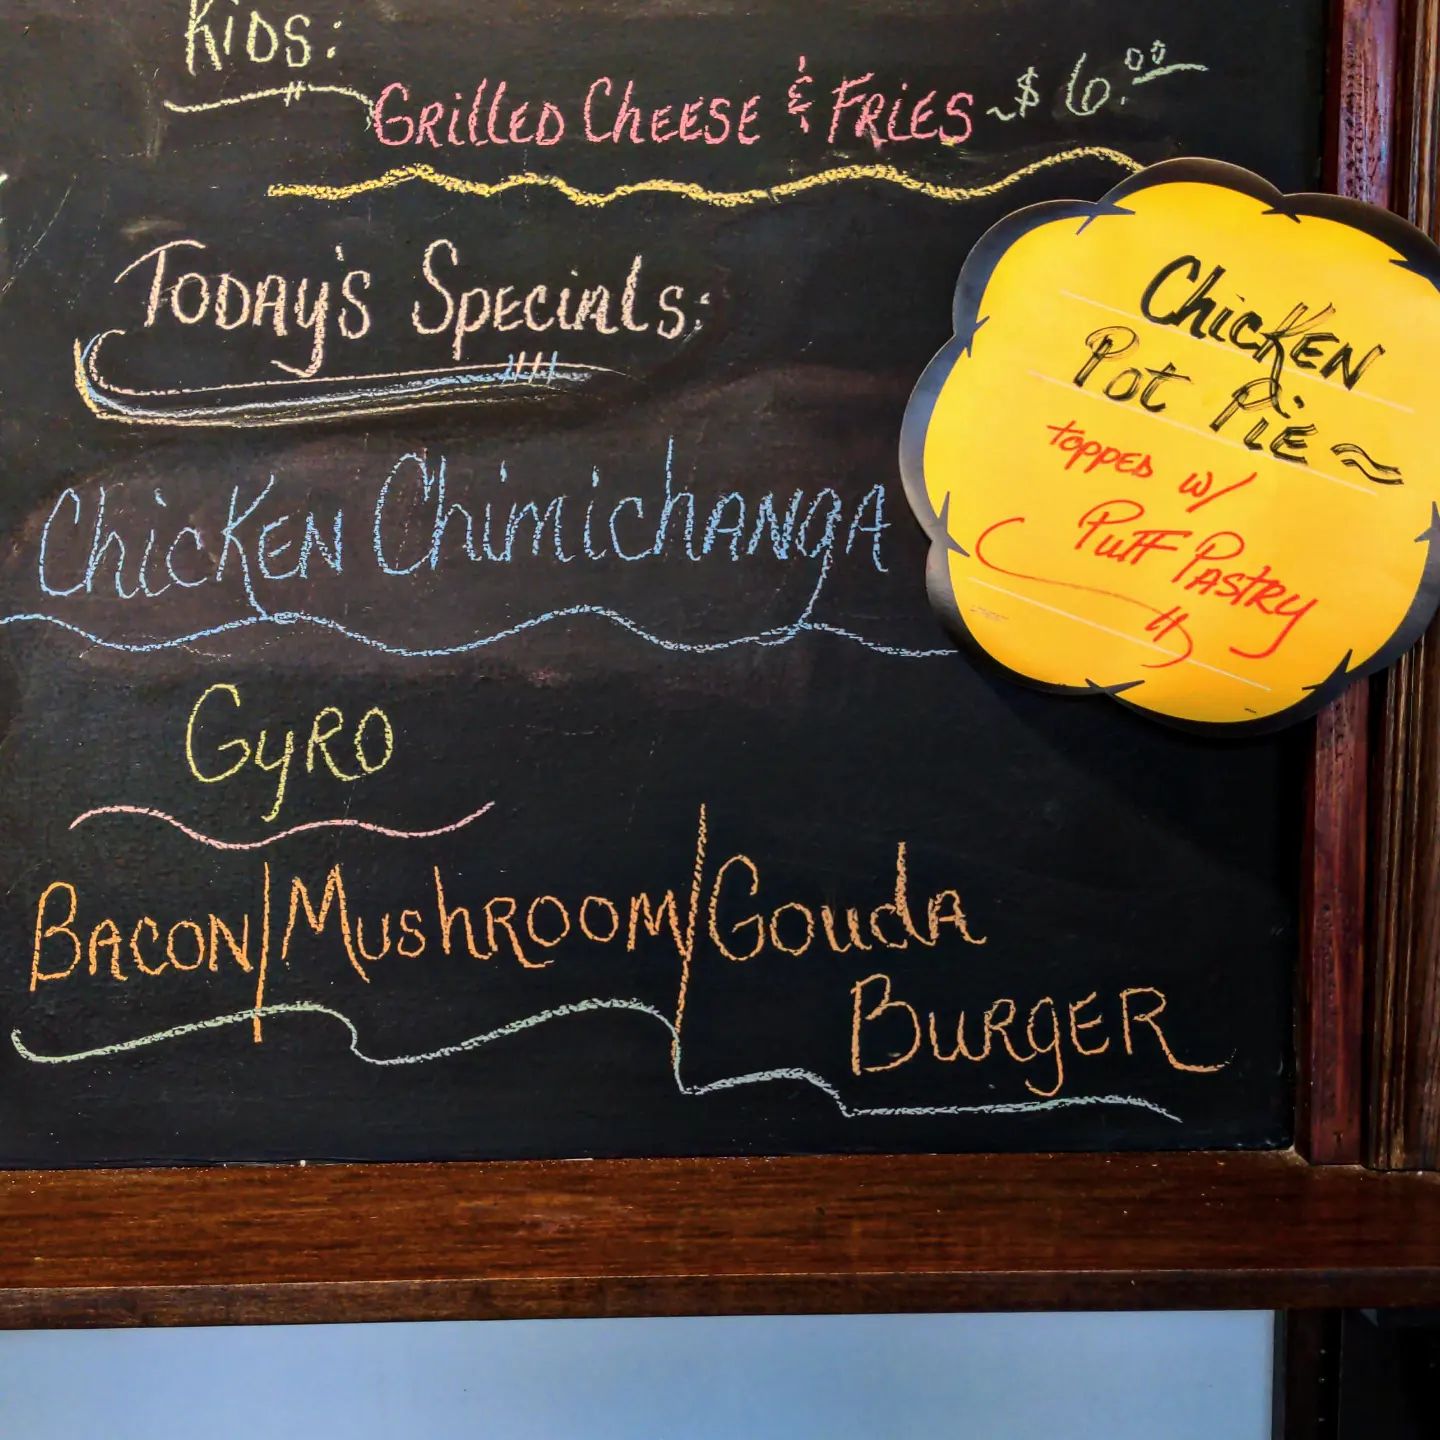 Kids:
Grilled Cheese & Fries ~ $6.00
Today's Specials:
Chicken Chimichanga
Gyro
Bacon/Mushroom/Gouda
Burger
Chicken
Pot Pie ~
topped w/
Puff Pastry